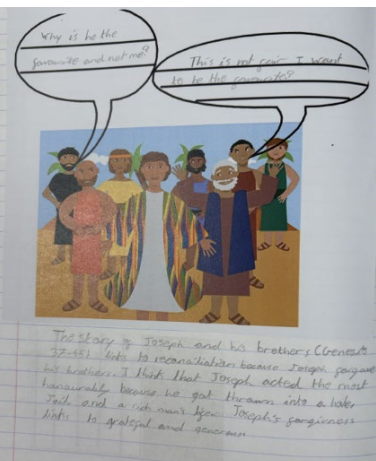 Why is he the
favourite and not me?
This is not fair I want
to be the favourite?
The story of Joseph and his brothers (Genesis
37-45) links to reconciliation because Joseph forgave
his brothers. I think that Joseph acted the most
honourably because he got thrown into a
Jail and a rich man's Joseph's forgivness
links to grateful and generous